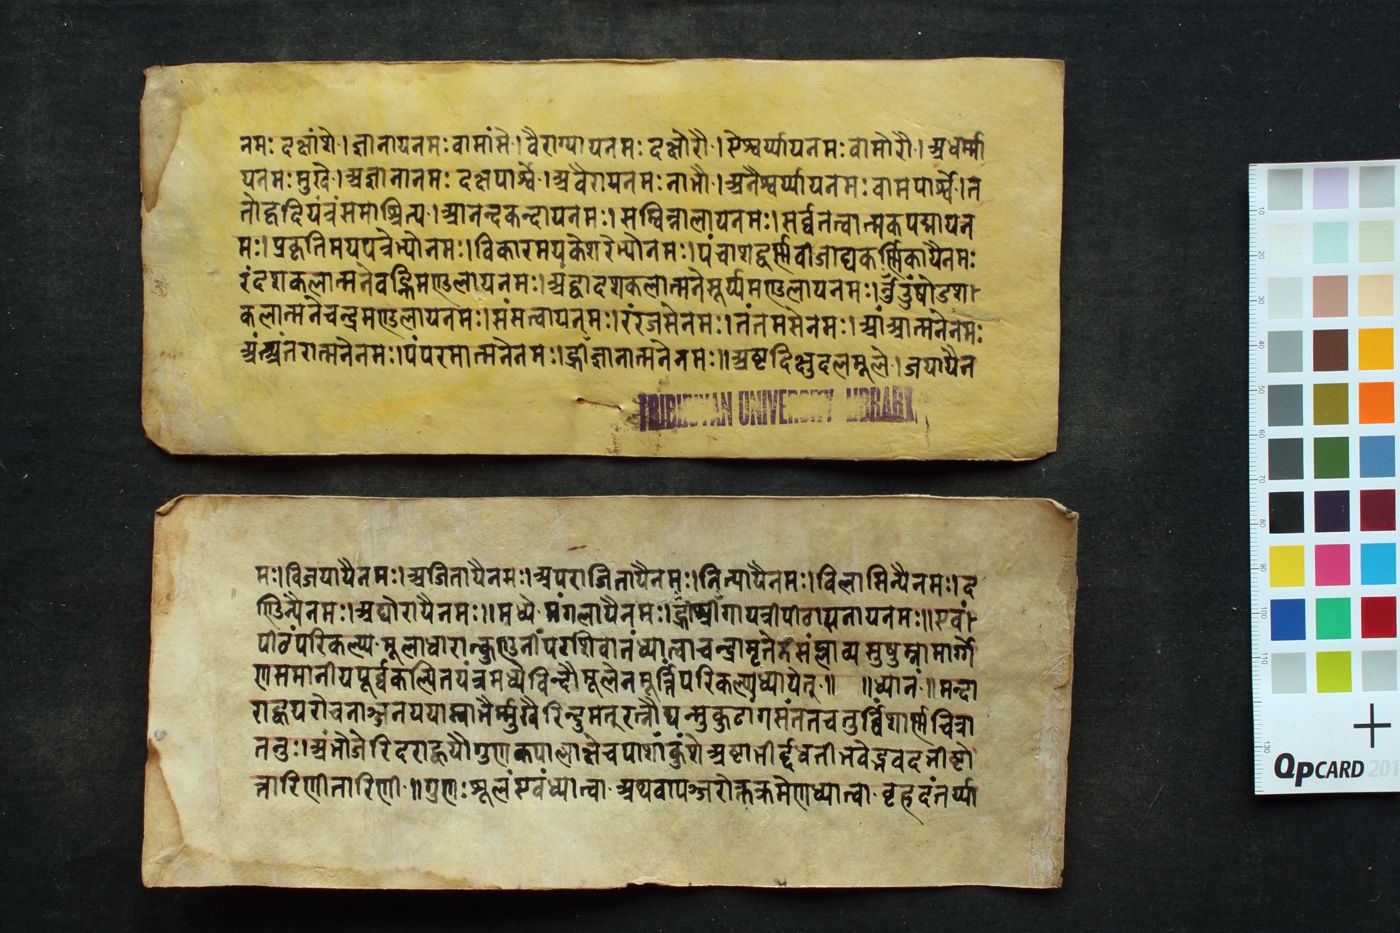 नमः दक्षांशे।ज्ञानायनमःवामांसे।वैराग्यायनमःदक्षोरौ।ऐश्वर्य्यायनमःवामोरौ।अधर्म्मा
यनमःमुखे।अज्ञानानमःदक्षपार्श्वे।अवैरायनमःनाभौ।अनैश्वर्य्यायनमःवामपार्श्वे।त
तोहृदियंत्रंसमाश्रित्य।आनन्दकन्दायनमः।सम्विन्नालायनमः।सर्व्वतत्वात्मकपद्मायन
मः।प्रकृतिमयपत्रेभ्योनमः।विकारमयकेशरेभ्योनमः।पंचाशद्वर्ण्णबीजाढ्यकर्ण्णिकायैनमः
रंदशकलात्मनेवह्निमण्डलायनमः।अंद्वादशकलात्मनेसूर्य्यमण्डलायनमः।षोडश
कलात्मनेचन्द्रमण्डलायनमः।संसत्वायनमः।रंरजसेनमः।तंतमसेनमः।आंआत्मनेनमः
अंअंतरात्मनेनमः।पंपरमात्मनेनमः।ह्रींज्ञानात्मनेनमः॥अष्टदिक्षुदलमूले।जयायैन
TRIBHUVAN UNIVERSITY LIBRARY
मः।विजयायैनमः।अजितायैनमः।अपराजितायैनमः।नित्यायैनमः।विलासिन्यैनमः।द
ण्डिन्यैनमः।अघोरायैनमः॥मध्ये मंगलायैनमः।ह्रींश्रींगायत्रीपीठायनमः॥एवं
पीठंपरिकल्प्य मूलाधारात्कुण्डलीं परशिवानंध्यात्वाचन्द्रामृतेनसंप्लाव्यसुषुम्नामार्ग्गे
णसमानीयपूर्व्वकल्पितयंत्रमध्येविन्दौमूलेनमूर्त्तिंपरिकल्प्यध्यायेत्॥ ॥ध्यानं॥मन्दा
राह्वयरोचनाञ्जन
तनुः।अंभोजेरिदराह्वयौगुणकपालाक्षेचपाशांकुशे
त्रारिणीतारिणी॥ एवंध्यात्वा अथवापञ्जरोक्तक्रमेणध्यात्वा
QPCARD 201
10
20
30
40
50
60
70
80
90
100
110
130